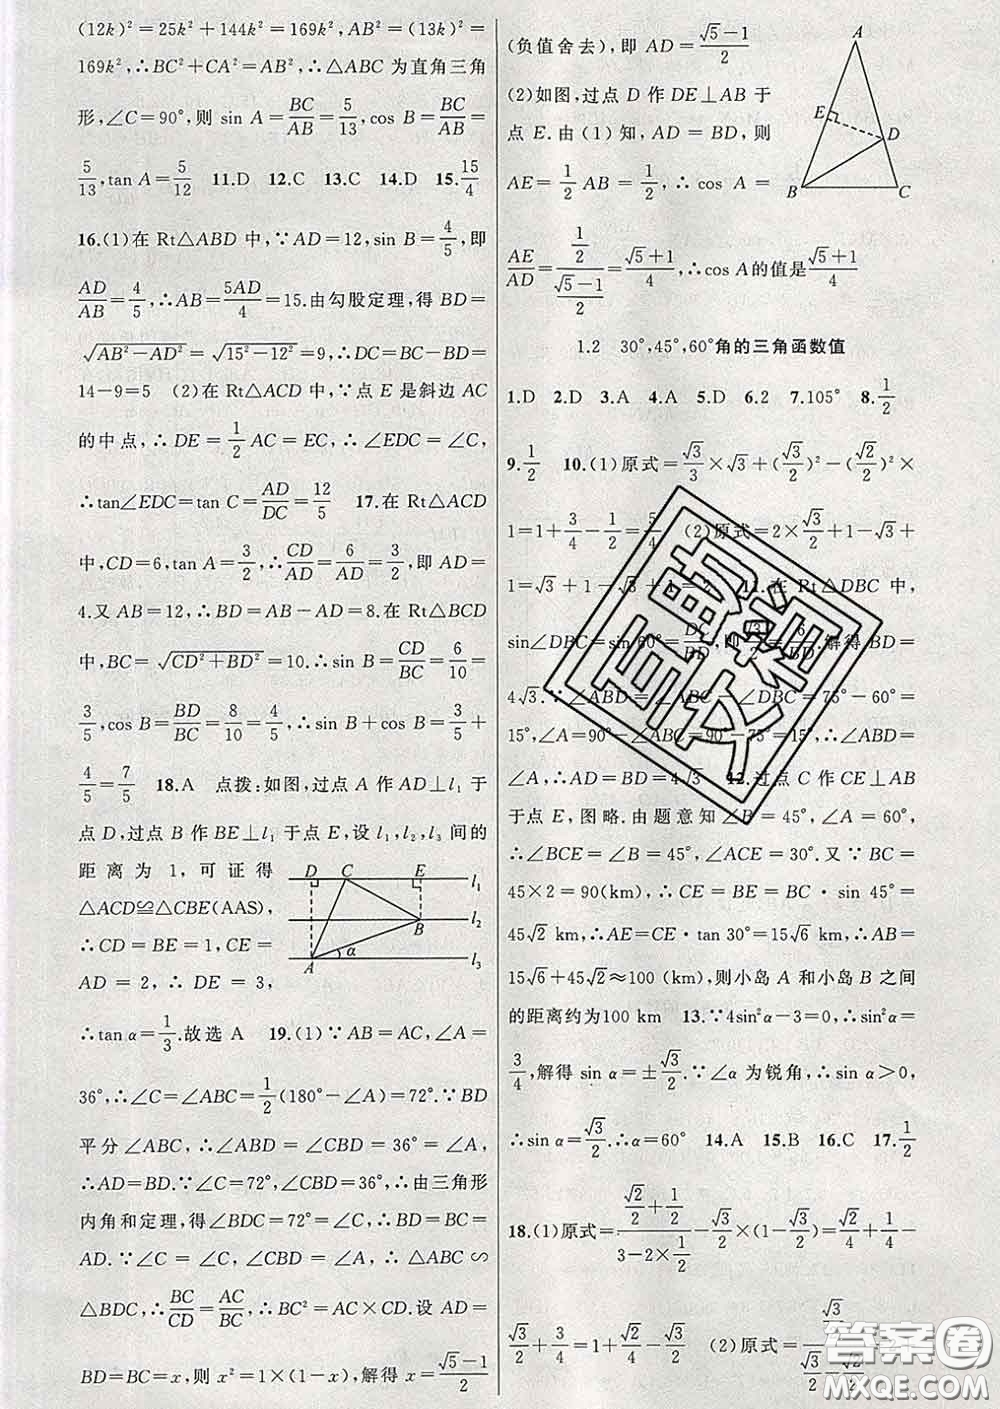 (12k)²=25k²+144k²=169k²,AB²=(13k)²=
169k²,∴BC²+CA²=AB²,∴△ABC 为直角三角
形,∠C=90°,则 sin A=BC/AB=5/13,cos B=BC/AB=
5/13,tan A=5/12 11.D 12.C 13.C 14.D 15.15/4
16.(1)在 Rt△ABD 中,∵AD=12,sin B=4/5,即
AD/AB=4/5,∴AB=5AD/4=15.由勾股定理,得 BD=
√(AB²-AD²)=√(15²-12²)=9,∴DC=BC-BD=
14-9=5 (2)在 Rt△ACD 中,∵点 E 是斜边 AC
的中点,∴DE=1/2 AC=EC,∴∠EDC=∠C,
∴tan∠EDC=tan C=AD/DC=12/5 17.在 Rt△ACD
中,CD=6,tan A=3/2,∴CD/AD=6/AD=3/2,即 AD=
4.又 AB=12,∴BD=AB-AD=8.在 Rt△BCD
中,BC=√(CD²+BD²)=10.∴sin B=CD/BC=6/10=
3/5,cos B=BD/BC=8/10=4/5,∴sin B+cos B=3/5+
4/5=7/5 18.A 点拨:如图,过点 A 作 AD⊥l₁ 于
点 D,过点 B 作 BE⊥l₁ 于点 E,设 l₁,l₂,l₃ 间的
距离为 1,可证得
△ACD≌△CBE(AAS),
∴CD=BE=1,CE=
AD=2,∴DE=3,
D C E l₁
l₂
B
A α l₃
∴tan α=1/3.故选 A 19.(1)∵AB=AC,∠A=
36°,∴∠C=∠ABC=1/2(180°-∠A)=72°.∵BD
平分∠ABC,∴∠ABD=∠CBD=36°=∠A,
∴AD=BD.∵∠C=72°,∠CBD=36°,∴由三角形
内角和定理,得∠BDC=72°=∠C,∴BD=BC=
AD.∵∠C=∠C,∠CBD=∠A,∴△ABC∽
△BDC,∴BC/CD=AC/BC,∴BC²=AC×CD.设 AD=
BD=BC=x,则 x²=1×(1-x),解得 x=(√5-1)/2
(负值舍去),即 AD=(√5-1)/2
(2)如图,过点 D 作 DE⊥AB 于
点 E.由(1)知,AD=BD,则
AE=1/2 AB=1/2,∴cos A=
A
E
D
B C
AE/AD=(1/2)/((√5-1)/2)=(√5+1)/4,∴cos A的值是(√5+1)/4
1.2 30°,45°,60°角的三角函数值
1.D 2.D 3.A 4.A 5.D 6.2 7.105° 8.1/2
9.1/2 10.(1)原式=√3/3×√3+(√3/2)²-(√2/2)²×
1=1+3/4-1/2=5/4 (2)原式=2×√3/2+1-√3+
1=√3+1-√3+1=2 11.在 Rt△DBC 中,
sin∠DBC=sin 60°=DC/BD,即√3/2=6/BD.解得 BD=
4√3.∵∠ABD=∠ABC-∠DBC=75°-60°=
15°,∠A=90°-∠ABC=90°-75°=15°,∴∠ABD=
∠A,∴AD=BD=4√3 12.过点 C 作 CE⊥AB
于点 E,图略.由题意知∠B=45°,∠A=60°,
∴∠BCE=∠B=45°,∠ACE=30°.又∵BC=
45×2=90(km),∴CE=BE=BC·sin 45°=
45√2 km,∴AE=CE·tan 30°=15√6 km,∴AB=
15√6+45√2≈100 (km),则小岛 A 和小岛 B 之间
的距离约为100 km 13.∵4sin²α-3=0,∴sin²α=
3/4,解得 sin α=±√3/2.∵∠α 为锐角,∴sin α>0,
∴sin α=√3/2.∴α=60° 14.A 15.B 16.C 17.1/2
18.(1)原式=(√2/2+1/2)/(3-2×1/2)-√3/2×(1-√3/2)=√2/4+1/4-
√3/2+3/4=1+√2/4-√3/2 (2)原式=(√3/2)/(√3/2-√2/2)
百助文档
答案圈
MXQE.COM